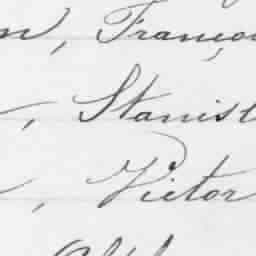 n, Franço
, Stanisl
, Victor